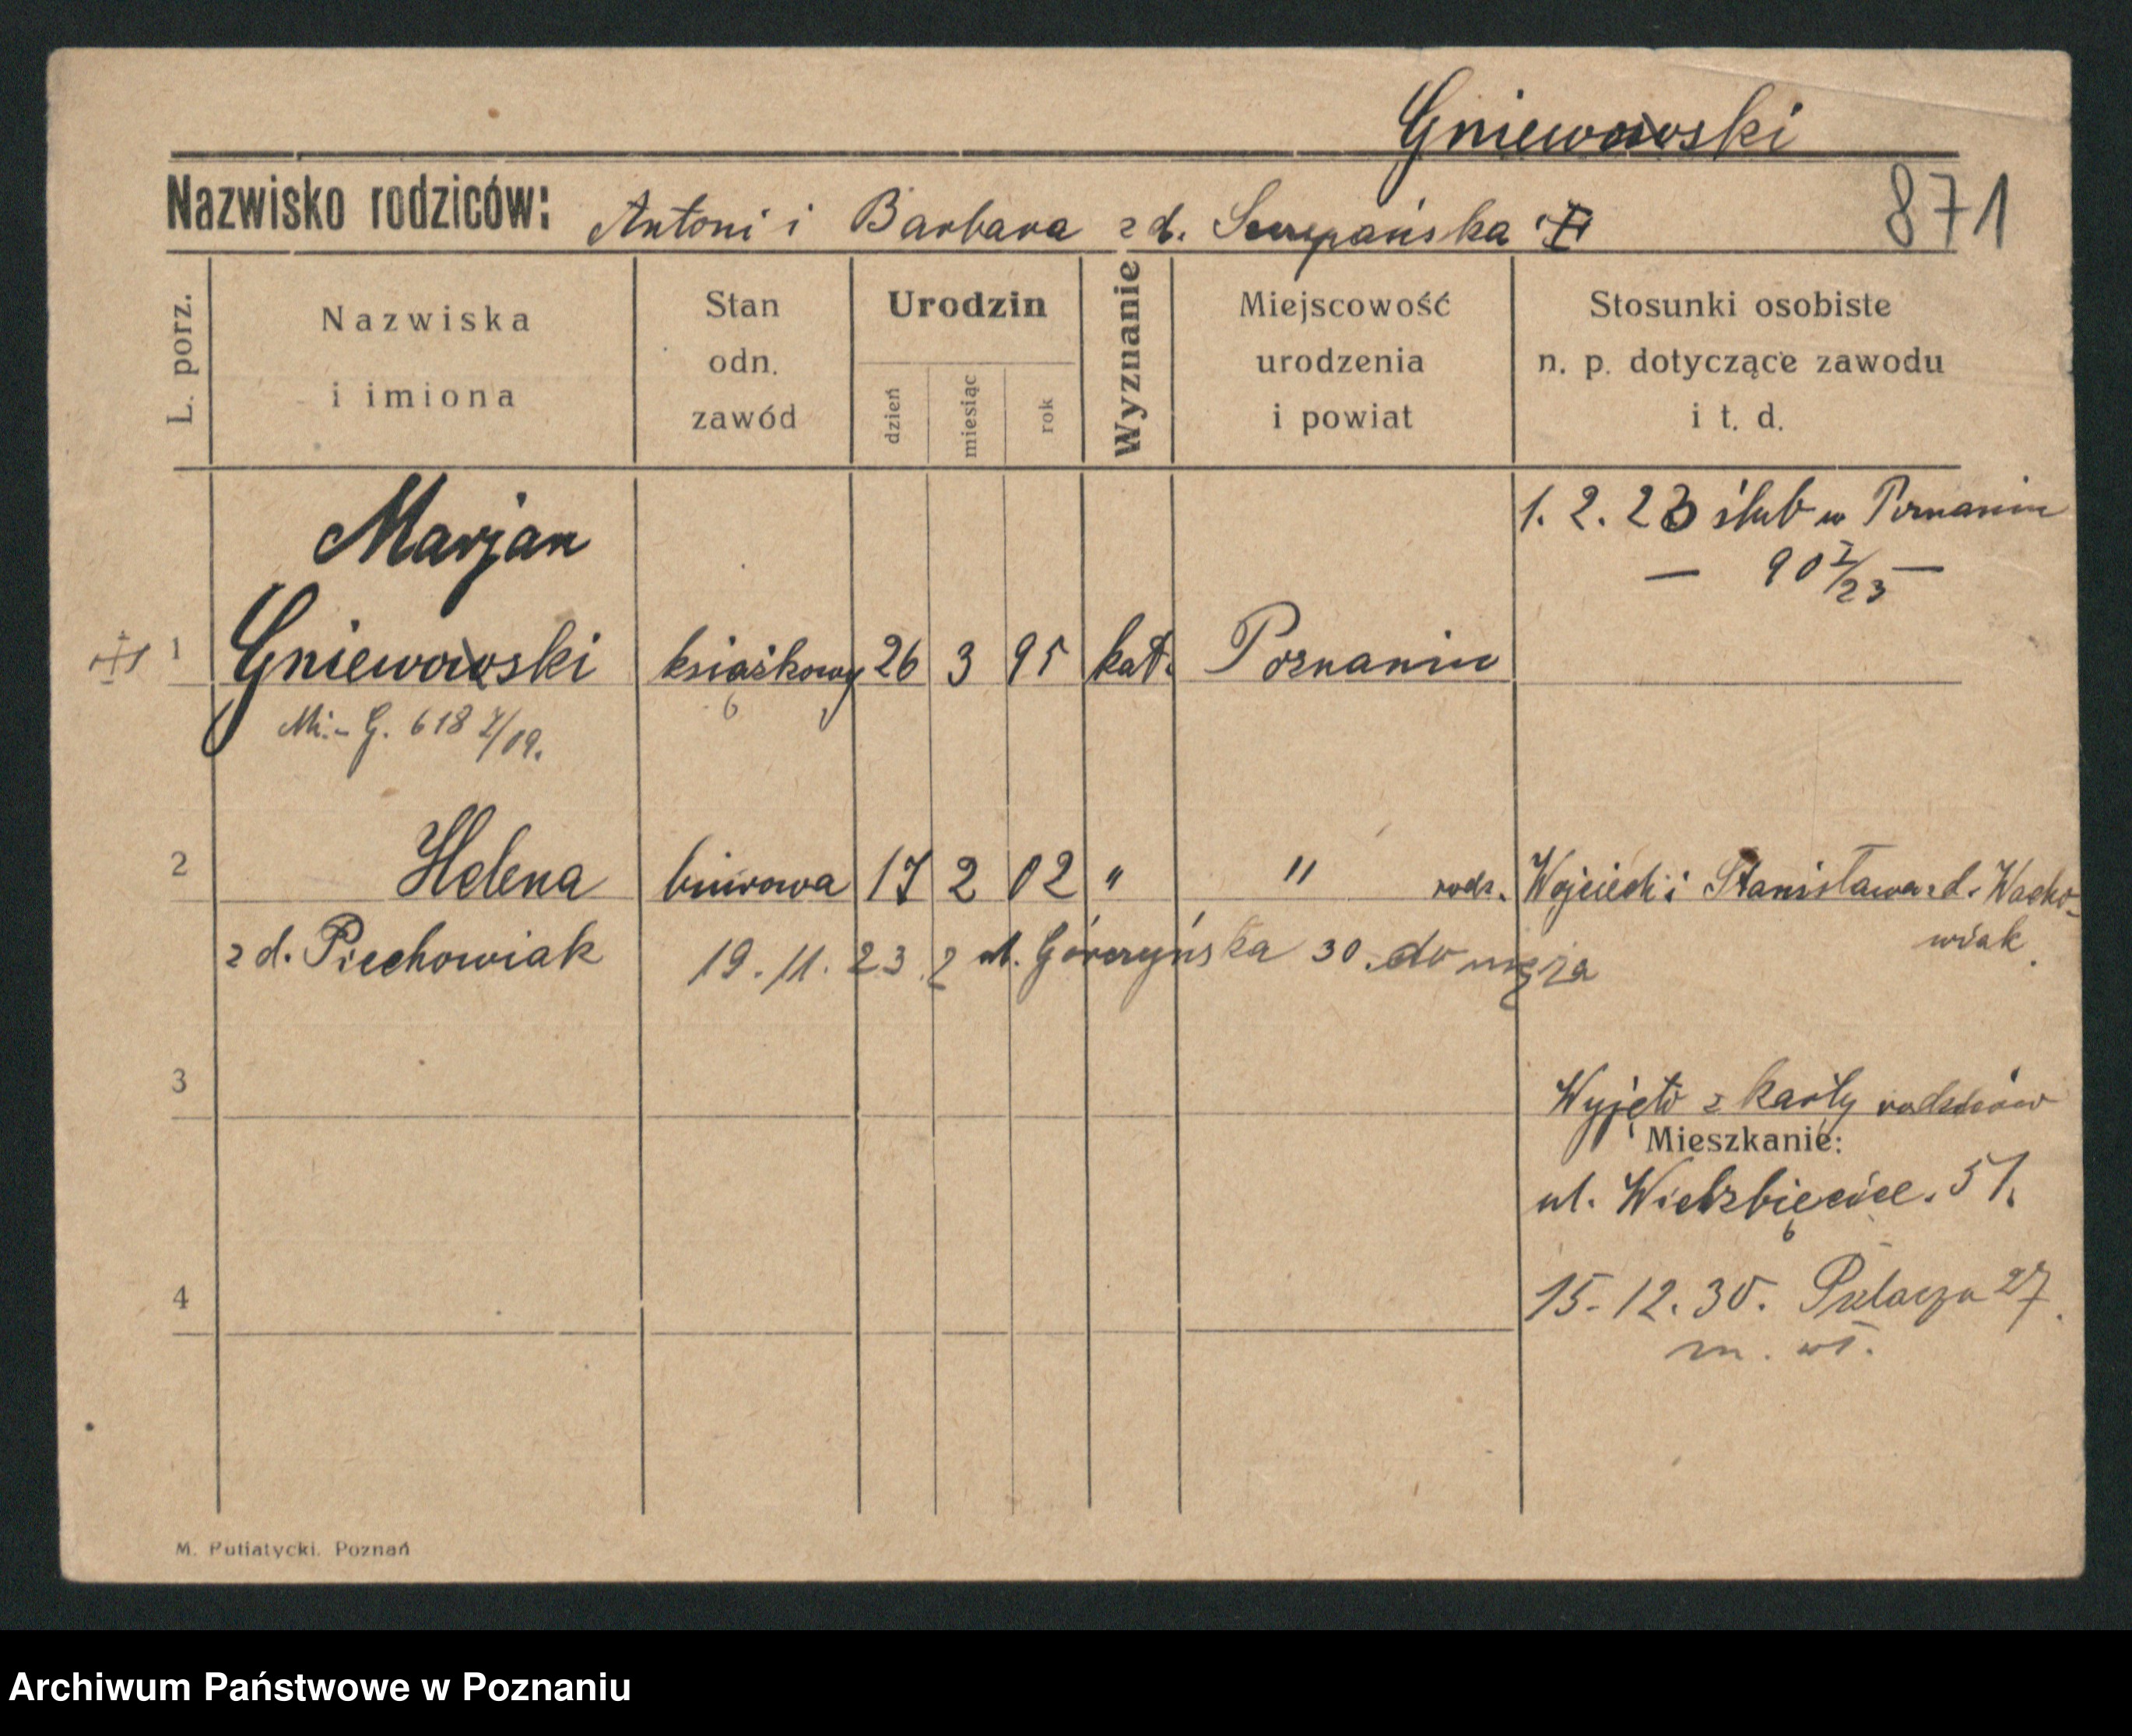 Gniewowski
Nazwisko rodziców: Antoni i Barbara z d. Szczepańska
871
L. porz.
Nazwiska
i imiona
Stan
odn.
zawód
Urodzin
dzień
miesiąc
rok
Wyznanie
Miejscowość
urodzenia
i powiat
Stosunki osobiste
n. p. dotyczące zawodu
i t. d.
1. 2. 23 ślub w Poznaniu
— 90 I/23 —
Marjan
1 Gniewowski książkowy 26 3 95 kat. Poznaniu
Mi.- G. 618 /19.
2 Helena biurowa 17 2 02 " " rodz. Wojciech i Stanisława z d. Wacho-
wiak.
z d. Piechowiak 19. 11. 23. z ul. Górczyńska 30. do męża
3 Wyjęto z karty rodziców
Mieszkanie:
ul. Wierzbięcice. 51.
4 15. 12. 30. 27.
m. wł.
M. Putiatycki. Poznań
Archiwum Państwowe w Poznaniu